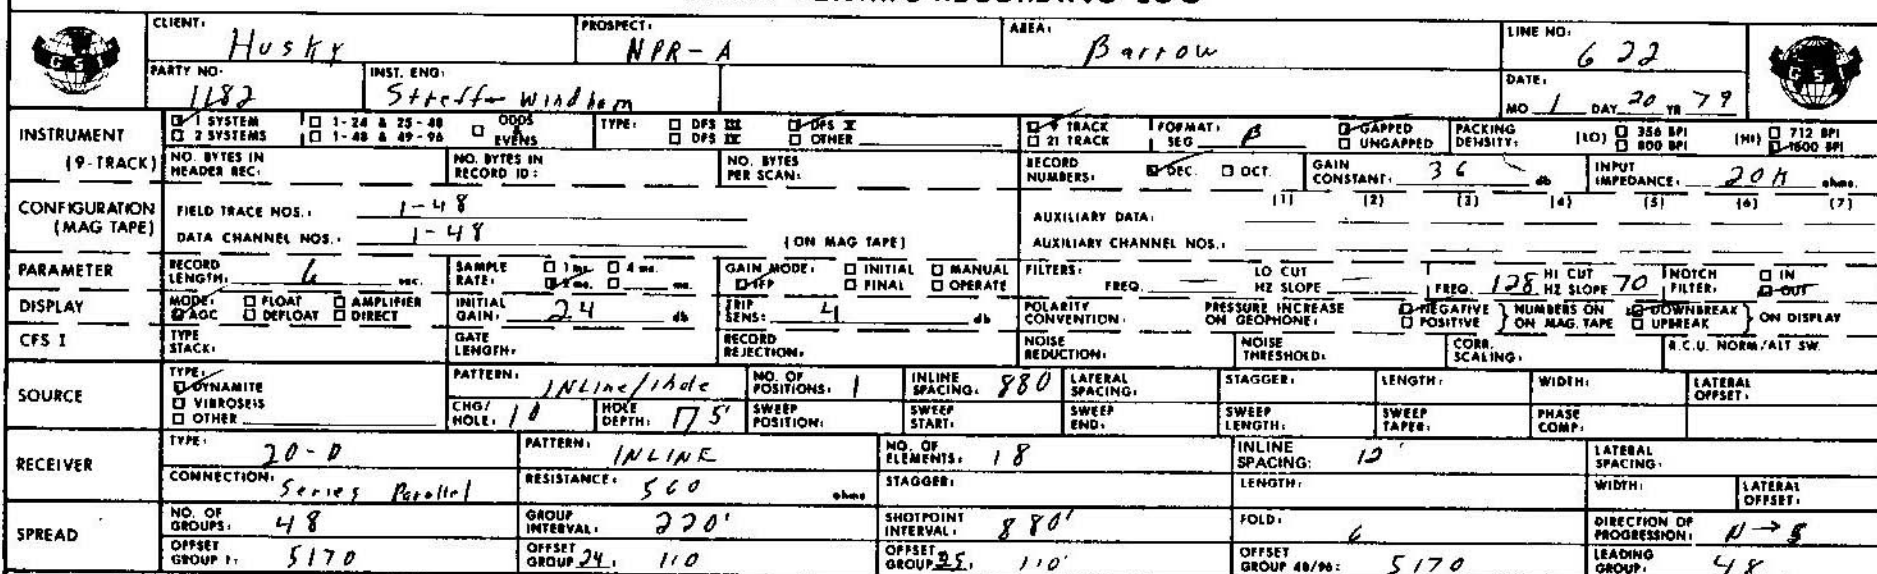 CLIENT: Husky PROSPECT: NPR-A AREA: Barrow LINE NO: 622
GSI GSI
PARTY NO: 1182 INST. ENG: Windham DATE: MO 1 DAY 20 YR 79
INSTRUMENT 1 SYSTEM 1-24 & 25-48 ODDS & EVENS TYPE: DFS III DFS V 9 TRACK FORMAT: GAPPED PACKING DENSITY: (LO) 356 BPI (HI) 712 BPI
2 SYSTEMS 1-48 & 49-96 DFS IV OTHER 21 TRACK SEG B UNGAPPED 800 BPI 1600 BPI
(9-TRACK) NO. BYTES IN HEADER REC: NO. BYTES IN RECORD ID: NO. BYTES PER SCAN: RECORD NUMBERS: DEC. OCT. GAIN CONSTANT: 36 db INPUT IMPEDANCE: 20K ohms.
CONFIGURATION FIELD TRACE NOS.: 1-48 AUXILIARY DATA: (1) (2) (3) (4) (5) (6) (7)
(MAG TAPE) DATA CHANNEL NOS.: 1-48 (ON MAG TAPE) AUXILIARY CHANNEL NOS.:
PARAMETER RECORD LENGTH: 6 sec. SAMPLE RATE: 1 ms. 4 ms. 2 ms. ms. GAIN MODE: INITIAL MANUAL IFP FINAL OPERATE FILTERS: FREQ. LO CUT HZ SLOPE FREQ. 128 HI CUT HZ SLOPE 70 NOTCH FILTER: IN OUT
DISPLAY MODE: FLOAT AMPLIFIER AGC DEFLOAT DIRECT INITIAL GAIN: 24 db TRIP SENS: 4 db POLARITY CONVENTION: PRESSURE INCREASE ON GEOPHONE: NEGATIVE POSITIVE } NUMBERS ON ON MAG. TAPE DOWNBREAK UPBREAK } ON DISPLAY
CFS I TYPE STACK: GATE LENGTH: RECORD REJECTION: NOISE REDUCTION: NOISE THRESHOLD: CORR. SCALING: R.C.U. NORM/ALT SW.
SOURCE TYPE: DYNAMITE VIBROSEIS OTHER PATTERN: INLine/1hole NO. OF POSITIONS: 1 INLINE SPACING: 880 LATERAL SPACING: STAGGER: LENGTH: WIDTH: LATERAL OFFSET:
CHG/HOLE: HOLE DEPTH: 75' SWEEP POSITION: SWEEP START: SWEEP END: SWEEP LENGTH: SWEEP TAPER: PHASE COMP:
RECEIVER TYPE: 20-D PATTERN: INLINE NO. OF ELEMENTS: 18 INLINE SPACING: 12' LATERAL SPACING:
CONNECTION: Series Parallel RESISTANCE: 560 ohms STAGGER: LENGTH: WIDTH: LATERAL OFFSET:
SPREAD NO. OF GROUPS: 48 GROUP INTERVAL: 220' SHOTPOINT INTERVAL: 880' FOLD: 6 DIRECTION OF PROGRESSION: N→S
OFFSET GROUP 1: 5170 OFFSET GROUP 24: 110 OFFSET GROUP 25: 110' OFFSET GROUP 48/96: 5170 LEADING GROUP: 48